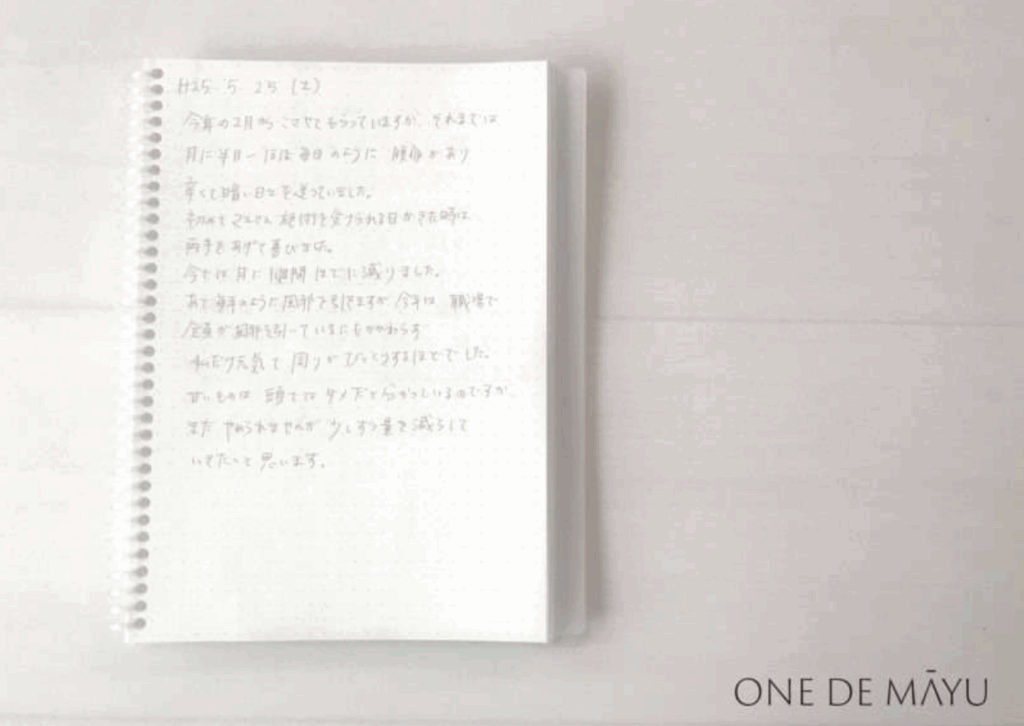 H25. 5. 25 (土)
今年の2月から こさせてもらっていますが、それまでは
月に半日〜 毎日のように 腹痛があり
辛くて暗い日々を送っていました。
初めて 施術を受けられる日がきた時は
両手をあげて喜びました。
今では月に 1週間ほどに減りました。
あと毎年のように風邪を引きますが 今年は 職場で
全員が風邪を引いているにもかかわらず
私だけ元気で 周りがびっくりするほどでした。
甘いものは 頭では ダメだと分かっているのですが
まだ やめられませんが 少しずつ量を減らして
いきたいと思います。
ONE DE MĀYU